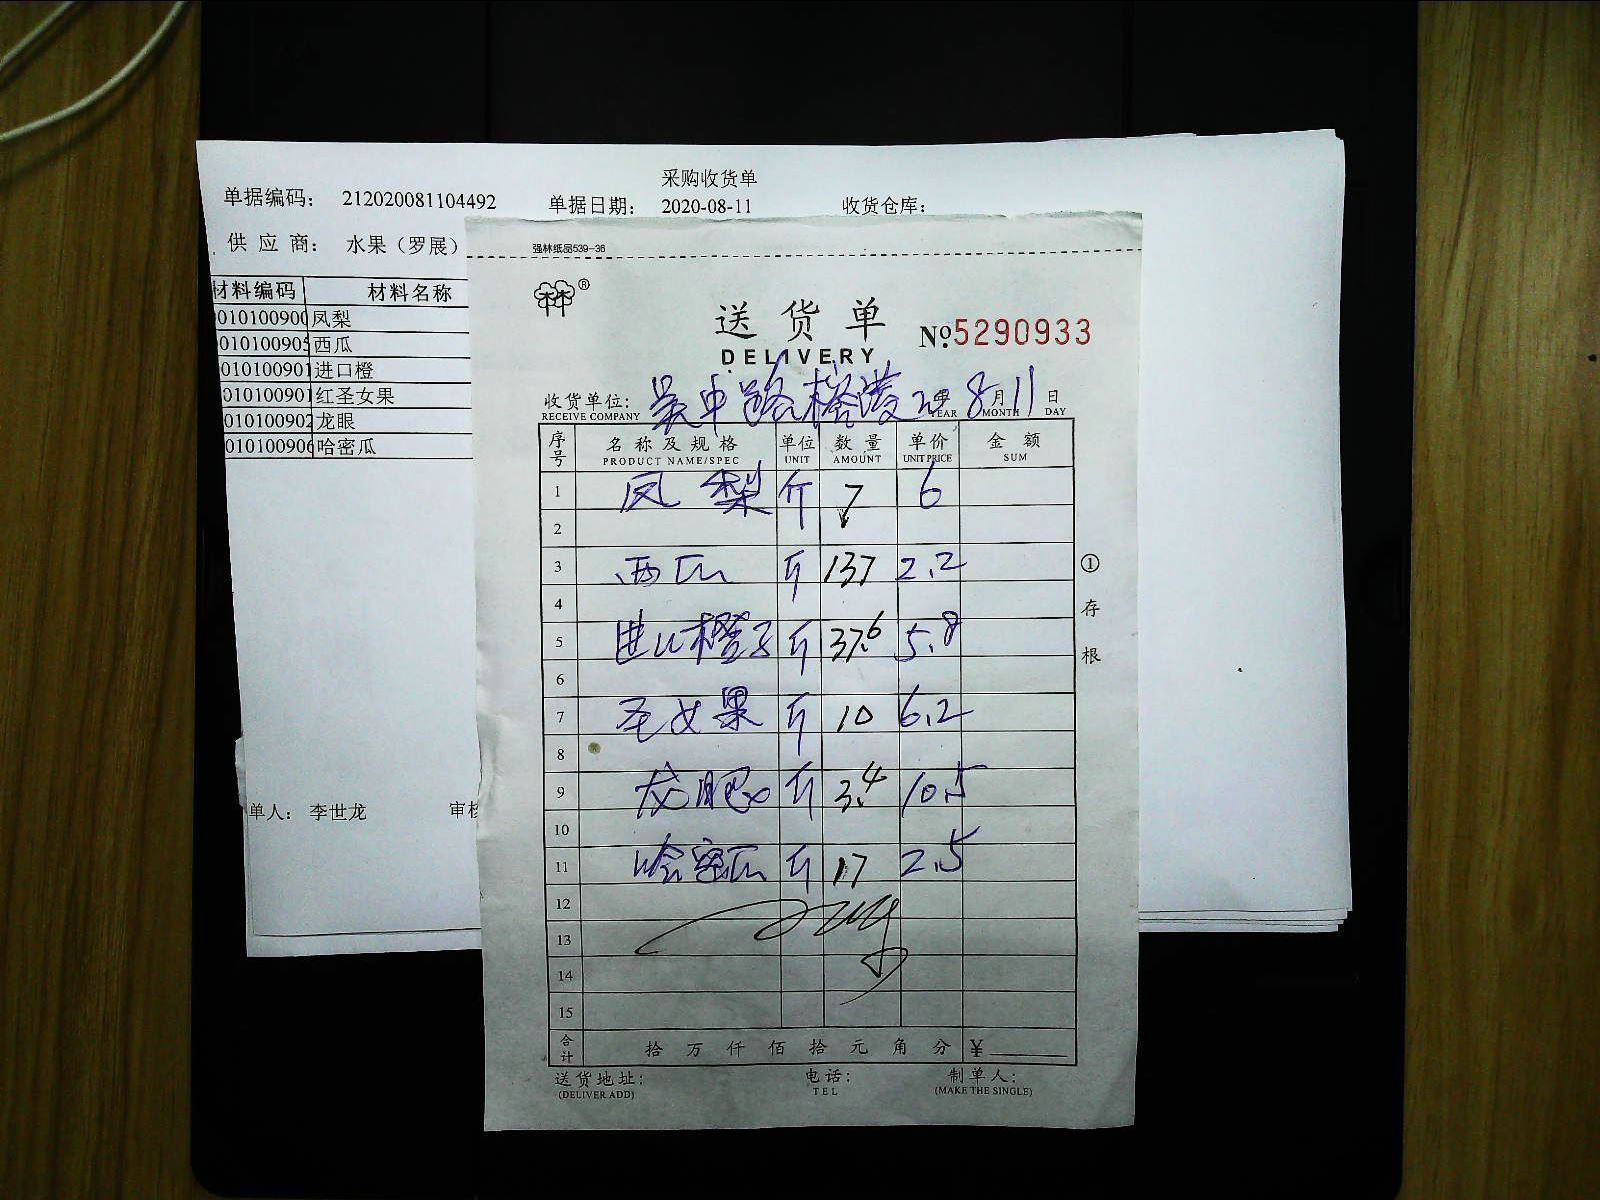 采购收货单
单据编码： 212020081104492 单据日期： 2020-08-11 收货仓库：
供 应 商： 水果（罗展）
材料编码 材料名称
010100900 凤梨
010100905 西瓜
010100901 进口橙
010100901 红圣女果
010100902 龙眼
010100906 哈密瓜
单人： 李世龙 审核
强林纸品539-36
林®
送货单 №5290933
DELIVERY
收货单位: 吴中路 年 8月11日
RECEIVE COMPANY YEAR MONTH DAY
序号 名称及规格 单位 数量 单价 金额
PRODUCT NAME/SPEC UNIT AMOUNT UNIT PRICE SUM
1 凤梨 斤 7 6
2
3 西瓜 斤 137 2.2
4
5 进口橙子 斤 37.6 5.8
6
7 圣女果 斤 10 6.2
8
9 龙眼 斤 3.4 10.5
10
11 哈密瓜 斤 17 2.5
12
13
14
15
①存根
合计 拾 万 仟 佰 拾 元 角 分 ¥
送货地址: 电话: 制单人:
(DELIVER ADD) TEL (MAKE THE SINGLE)